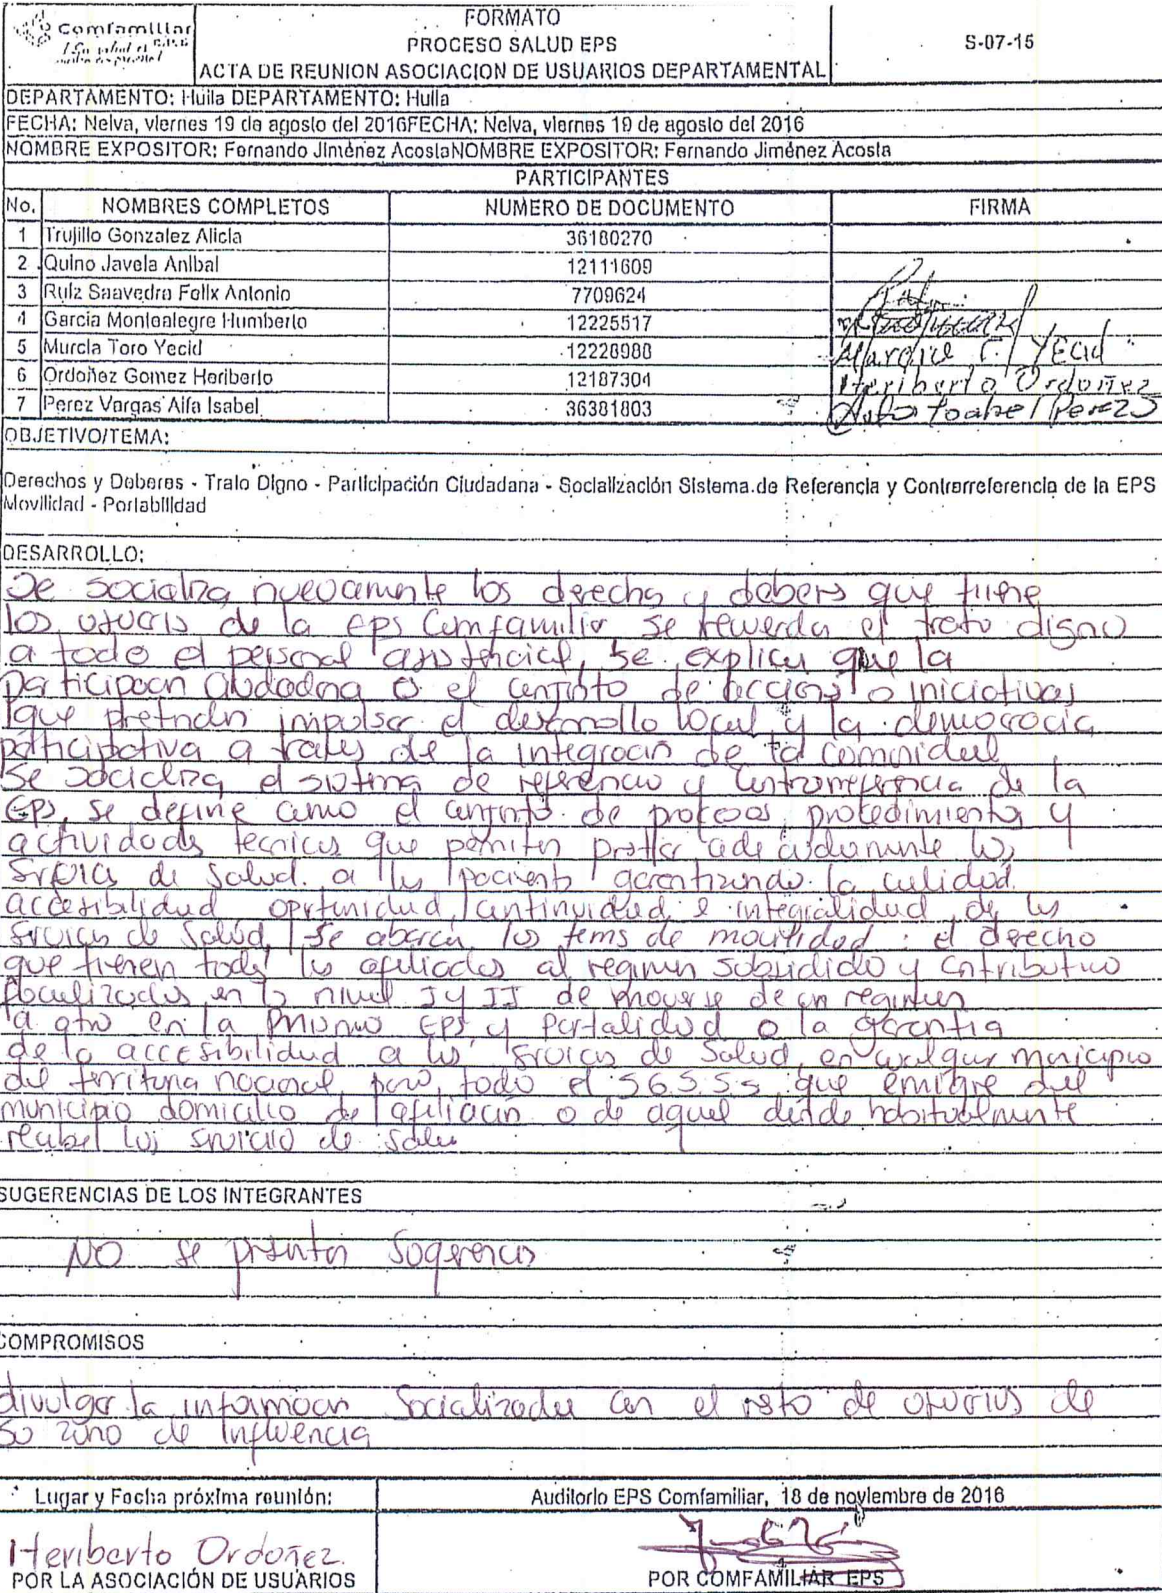 Comfamiliar
FORMATO
PROCESO SALUD EPS
S-07-15
ACTA DE REUNION ASOCIACION DE USUARIOS DEPARTAMENTAL
DEPARTAMENTO: Huila DEPARTAMENTO: Huila
FECHA: Neiva, viernes 19 de agosto del 2016FECHA: Neiva, viernes 19 de agosto del 2016
NOMBRE EXPOSITOR: Fernando Jiménez AcostaNOMBRE EXPOSITOR: Fernando Jiménez Acosta
PARTICIPANTES
No. NOMBRES COMPLETOS NUMERO DE DOCUMENTO FIRMA
1 Trujillo Gonzalez Alicia 36180270
2 Quino Javela Anibal 12111609
3 Ruiz Saavedra Felix Antonio 7709624
4 Garcia Montealegre Humberto 12225517
5 Murcia Toro Yecid 12226988 Yecid
6 Ordoñez Gomez Heriberto 12187304 Heriberto Ordoñez
7 Perez Vargas Aifa Isabel 36381803 Isabel Perez
OBJETIVO/TEMA:
Derechos y Deberes - Trato Digno - Participación Ciudadana - Socialización Sistema de Referencia y Contrarreferencia de la EPS
Movilidad - Portabilidad
DESARROLLO:
Se socializa nuevamente los derecho y debers que tiene
los usuaris de la eps Comfamiliar se recuerda el trato digno
a todo el personal asistencial, se explica que la
participacon ciudadana o el conjnto de accions o iniciativas
que pretnden impulsar el desarrollo local y la democracia
participativa a traves de la integracon de la comunidad
Se socializa el sistema de referencia y contrareferencia de la
EPS, se define como el conjnto de procesos procedimientos y
actividads tecnicas que permiten prestar adecuadamente los
servicios de Salud a los pacients garantizando la calidad
accesibilidad oportunidad, continuidad e integralidad de los
servicios de Salud, se abarca los tems de movilidad: el derecho
que tienen todos los afiliados al regimen subsidiado y contributivo
focalizados en lo nivel I y II de moverse de un regimen
a otro en la misma EPS y portalidad o la garantia
de la accesibilidad a los servicios de Salud, en cualquier municipio
del territorio nacional para todo el S6.S.S.s que emigre del
municipio domicilio de afiliacion o de aquel donde habitualmente
recibe los servicio de salu
SUGERENCIAS DE LOS INTEGRANTES
NO se presentan sugerencias
COMPROMISOS
divulgar la informacon socializada con el resto de usuarios de
su zona de influencia
Lugar y Fecha próxima reunión: Auditorio EPS Comfamiliar, 18 de noviembre de 2016
Heriberto Ordoñez.
POR LA ASOCIACIÓN DE USUARIOS POR COMFAMILIAR EPS